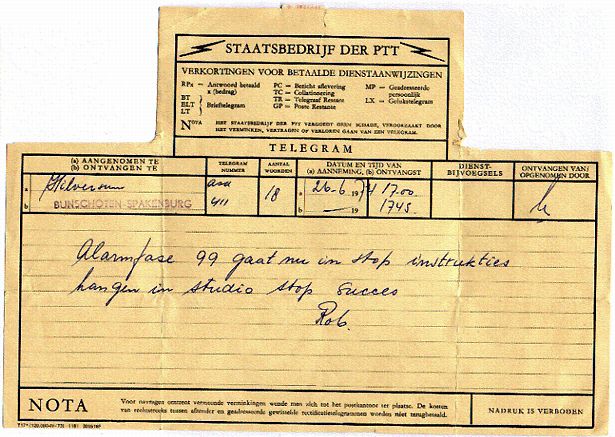 STAATSBEDRIJF DER PTT
VERKORTINGEN VOOR BETAALDE DIENSTAANWIJZINGEN
RPx = Antwoord betaald x (bedrag)
BT
ELT
LT
Brieftelegram
PC = Bericht aflevering
TC = Collationering
TR = Telegraaf Restant
GP = Poste Restante
MP = Geadresseerde persoonlijk
LX = Gelukstelegram
NOTA HET STAATSBEDRIJF DER PTT VERGOEDT GEEN SCHADE, VEROORZAAKT DOOR
HET VERMINKEN, VERTRAGEN OF VERLOREN GAAN VAN EEN TELEGRAM.
TELEGRAM
(a) AANGENOMEN TE
(b) ONTVANGEN TE
TELEGRAM NUMMER
AANTAL WOORDEN
DATUM EN TIJD VAN
(a) AANNEMING, (b) ONTVANGST
DIENST-BIJVOEGSELS
ONTVANGEN VAN/
OPGENOMEN DOOR
a Hilversum
18
a 26-6 1974 1700
b BUNSCHOTEN-SPAKENBURG
b 19 1745
Alarmfase 99 gaat nu in stop instrukties
hangen in studio stop succes
Rob.
NOTA
Voor navragen omtrent vermeende verminkingen wende men zich tot het postkantoor ter plaatse. De kosten
van rechtstreeks tussen afzender en geadresseerde gewisselde rectificatietelegrammen worden niet terugbetaald.
NADRUK IS VERBODEN